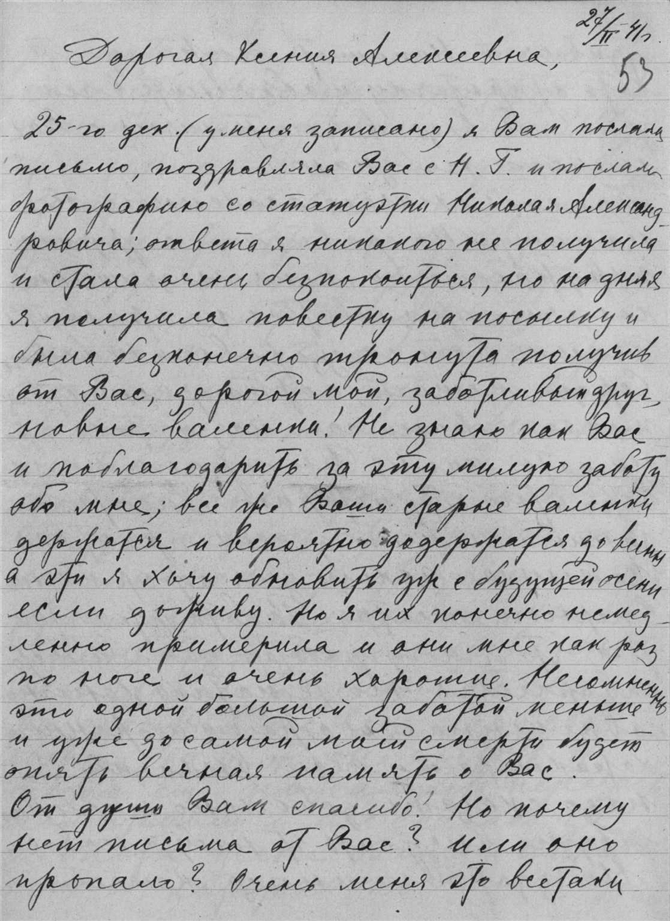 27/II 41 г.
53
Дорогая Ксения Алексеевна,
25-го дек. (у меня записано) я Вам послала
письмо, поздравляла Вас с Н. Г. и послала
фотографию со статуэтки Николая Александ-
ровича; ответа я никакого не получила
и стала очень безпокоиться, но на днях
я получила повестку на посылку и
была безконечно тронута получив
от Вас, дорогой мой, заботливый друг,
новые валенки! Не знаю как Вас
и поблагодарить за эту милую заботу
обо мне; все же Ваши старые валенки
держатся и вероятно додержатся до весны
а эти я хочу обновить уж с будущей осени
если доживу. Но я их конечно немед-
ленно примерила и они мне как раз
по ноге и очень хорошие. Несомненно
это одной большой заботой меньше
и уже до самой моей смерти будет
опять вечная память о Вас.
От души Вам спасибо! Но почему
нет письма от Вас? Или оно
пропало? Очень меня это всетаки